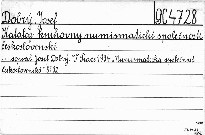 Dobrý, Josef
QC 4728
Katalog knihovny numismatické společnosti
československé
sepsal Josef Dobrý. V Praze 1934. Numismatická společnost
československá. 8°. 32